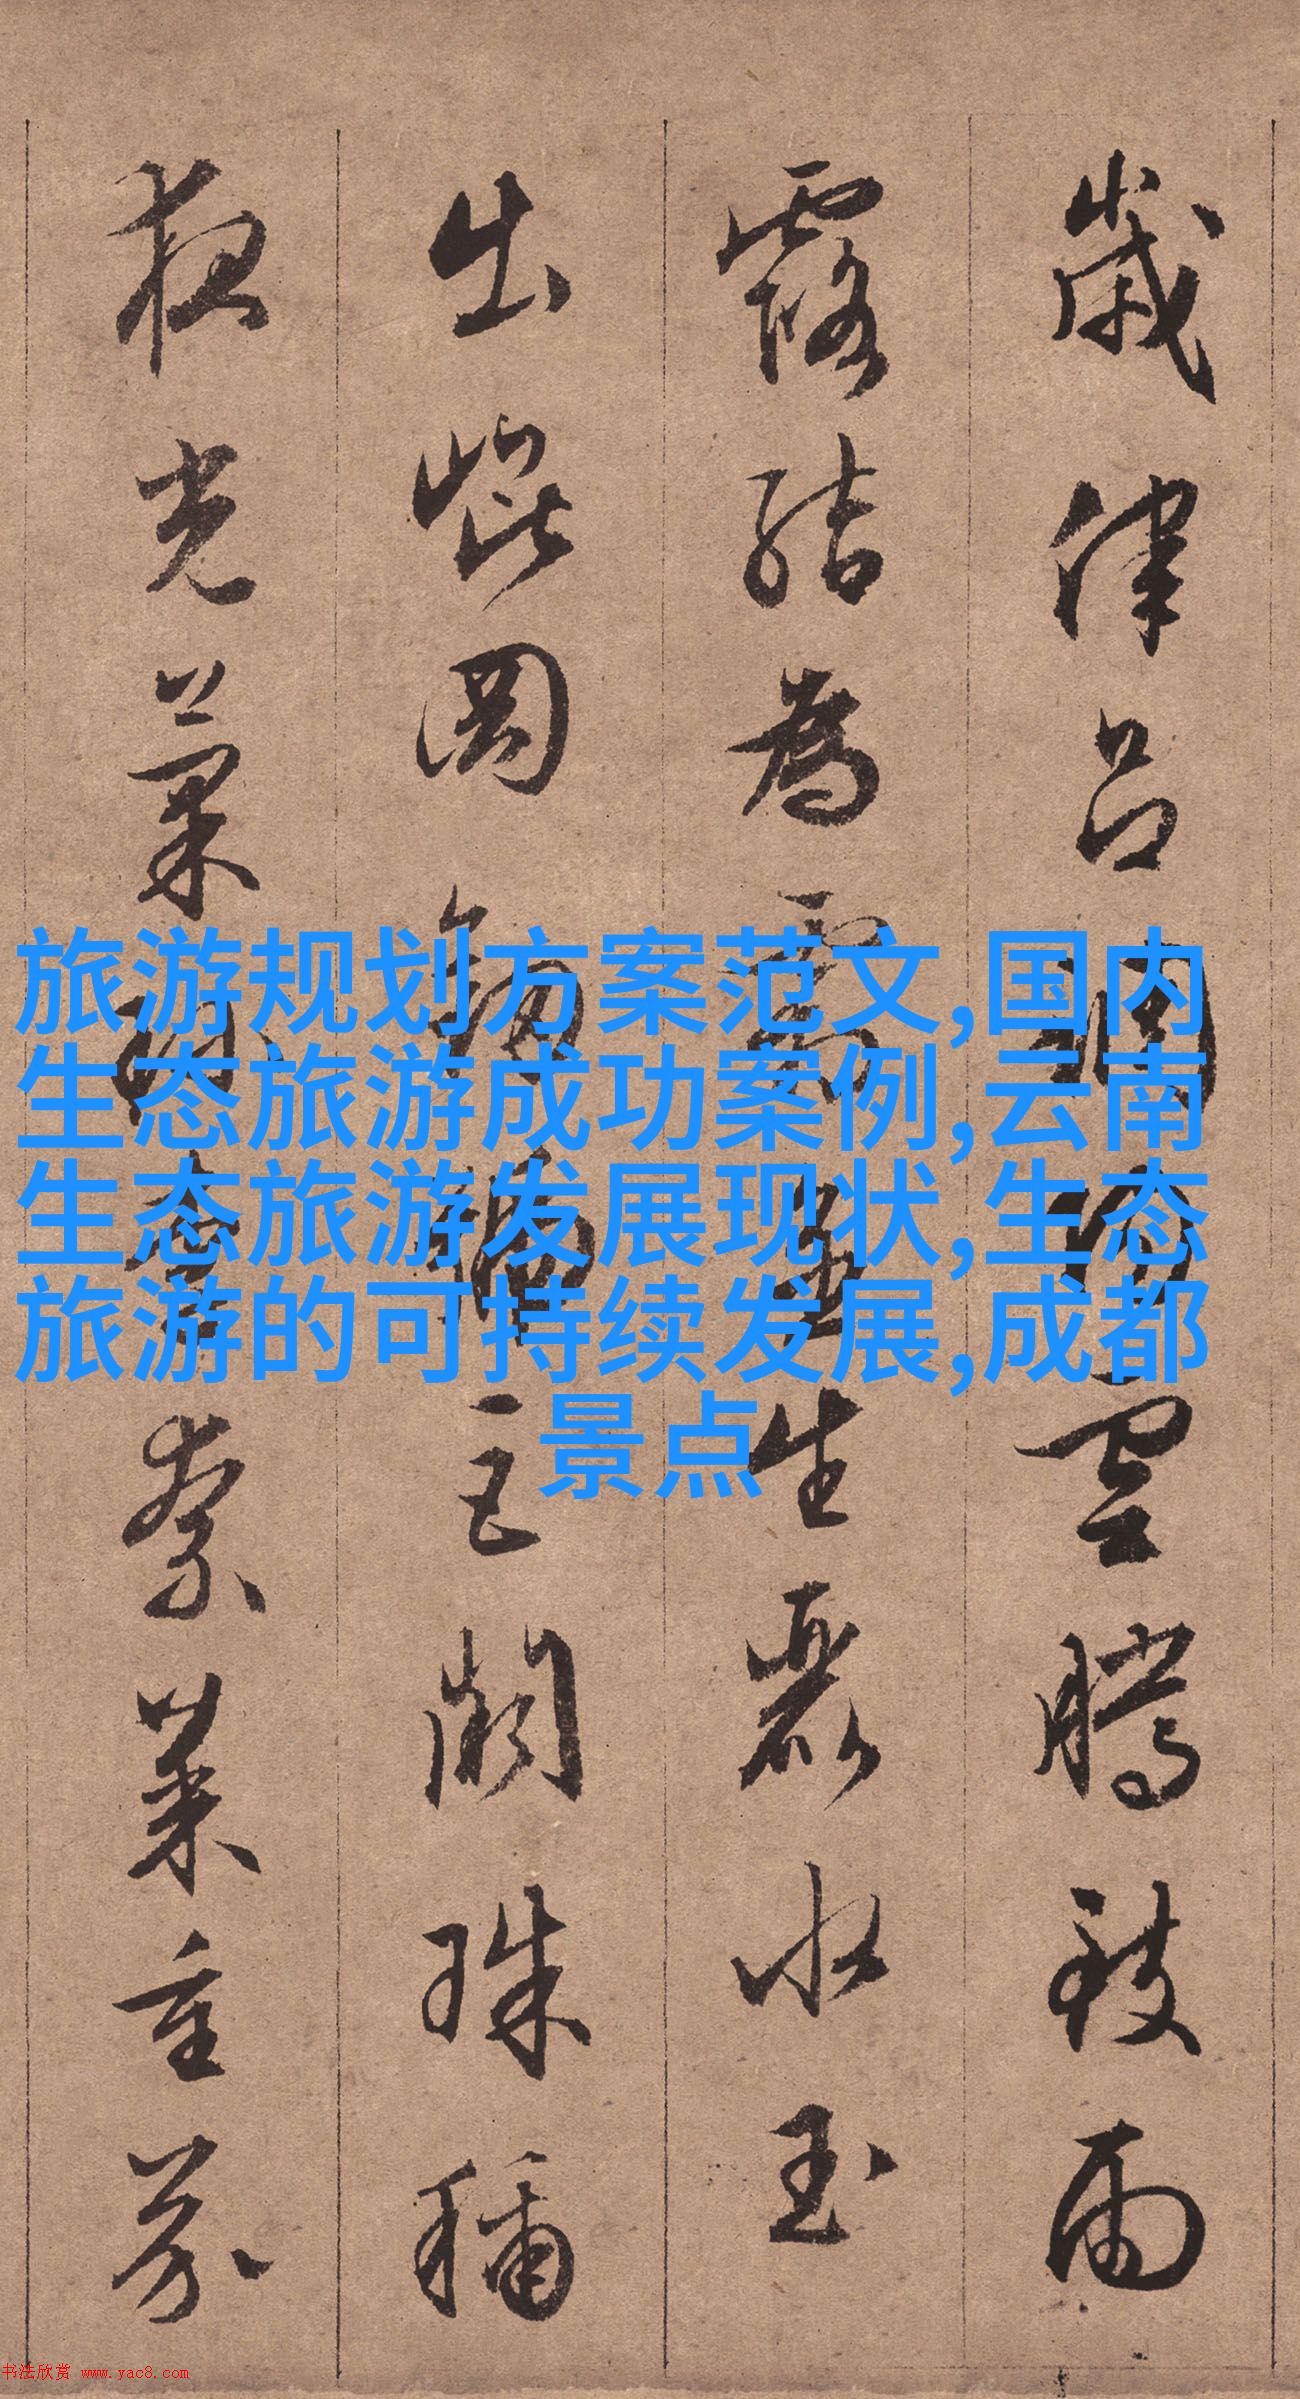 歲律呂調陽雲騰致雨
露結為霜金生麗水玉
出崐岡劍號巨闕珠稱
夜光菓珍李柰菜重芥
旅游规划方案范文,国内
生态旅游成功案例,云南
生态旅游发展现状,生态
旅游的可持续发展,成都
景点
书法欣赏 www.yac8.com